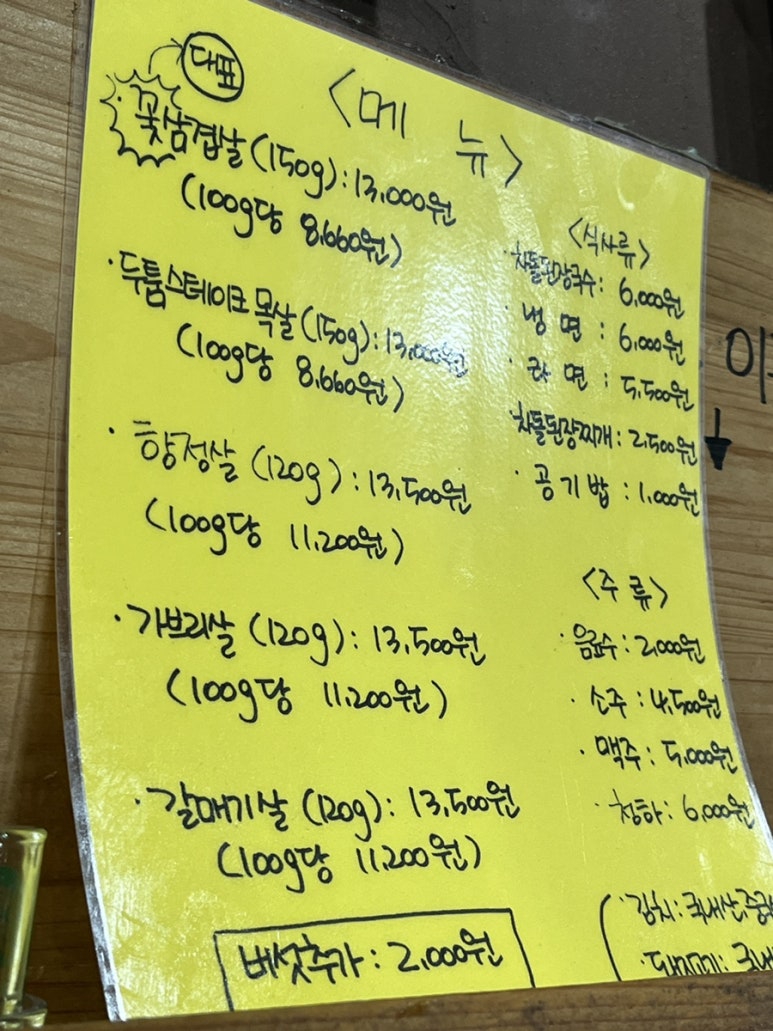 대표
<메 뉴>
·꽃삼겹살(150g):13,000원
(100g당 8,660원)
·두툼스테이크 목살(150g):13,000원
(100g당 8,660원)
·항정살(120g):13,500원
(100g당 11,200원)
·가브리살(120g):13,500원
(100g당 11,200원)
·갈매기살(120g):13,500원
(100g당 11,200원)
버섯추가:2,000원
<식사류>
·차돌된장국수:6,000원
·냉면:6,000원
·라면:5,500원
·차돌된장찌개:2,500원
·공기밥:1,000원
<주류>
·음료수:2,000원
·소주:4,500원
·맥주:5,000원
·청하:6,000원
·김치:국내산,중국
·돼지고기:국내